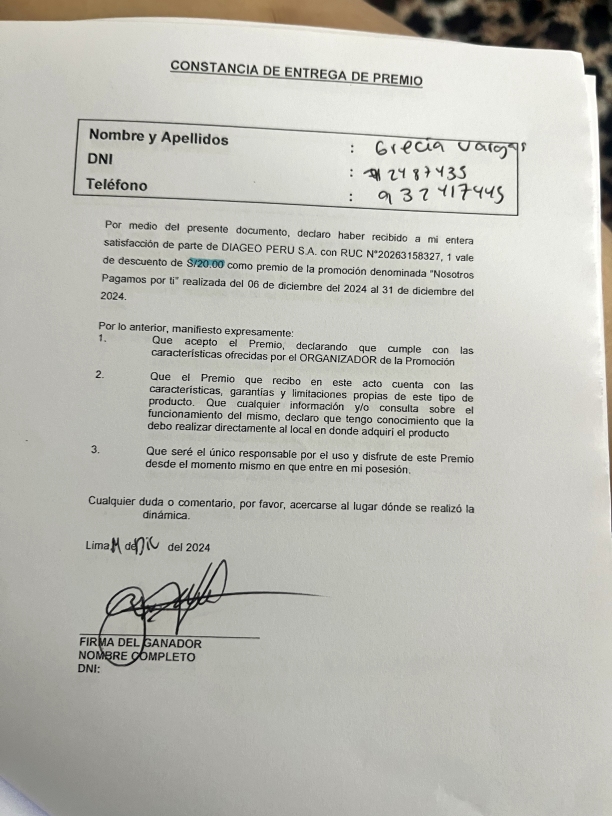 CONSTANCIA DE ENTREGA DE PREMIO
Nombre y Apellidos : Grecia Vargas
DNI : 2487435
Teléfono : 932417445
Por medio del presente documento, declaro haber recibido a mi entera
satisfacción de parte de DIAGEO PERU S.A. con RUC N°20263158327, 1 vale
de descuento de S/20.00 como premio de la promoción denominada "Nosotros
Pagamos por ti" realizada del 06 de diciembre del 2024 al 31 de diciembre del
2024.
Por lo anterior, manifiesto expresamente:
1. Que acepto el Premio, declarando que cumple con las
características ofrecidas por el ORGANIZADOR de la Promoción
2. Que el Premio que recibo en este acto cuenta con las
características, garantías y limitaciones propias de este tipo de
producto. Que cualquier información y/o consulta sobre el
funcionamiento del mismo, declaro que tengo conocimiento que la
debo realizar directamente al local en donde adquirí el producto
3. Que seré el único responsable por el uso y disfrute de este Premio
desde el momento mismo en que entre en mi posesión.
Cualquier duda o comentario, por favor, acercarse al lugar dónde se realizó la
dinámica.
Lima de Dic del 2024
FIRMA DEL GANADOR
NOMBRE COMPLETO
DNI: